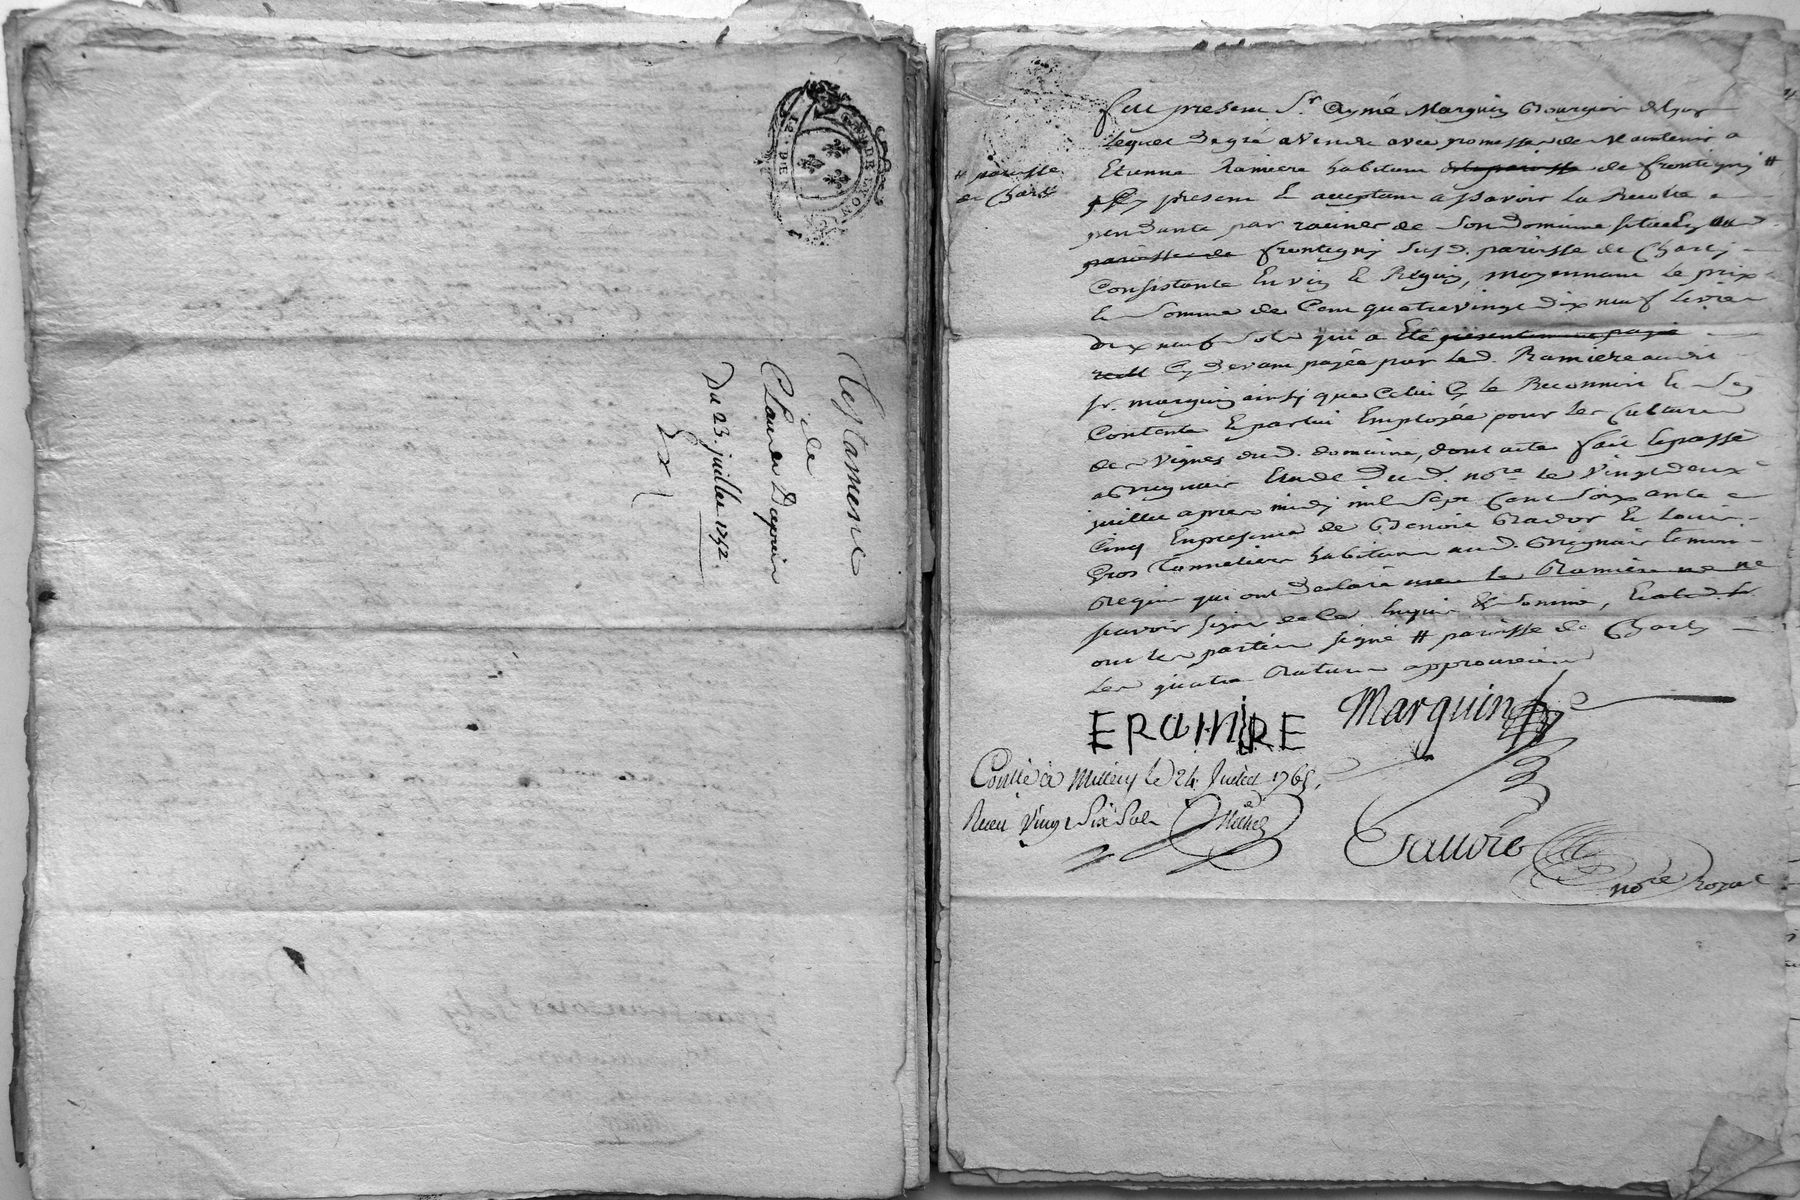 GEN. DE LYON
Testament
de
Claude Dapvin
Du 23. juillet 1752.
fut present Sr. Aymé Marquin Bourgeois de Lyon
lequel de gré a vendu avec promesse de maintenir a
Etienne Ramiere habitant de la paroisse de frontigny #
# paroisse
de Charly
cy present et acceptant a sçavoir la Recolte
pendante par racines de Son domaine situé au
paroisse de frontigny susd. paroisse de Charly
Consistante En vin et Region, moyennant le prix
et Somme de Cent quatrevingt dix neuf livres
dix neuf Sols qui a Eté presentement payée
reell Cy devant payée par led. Ramiere audit
Sr. marquin ainsy que Celui Cy le Reconnoit Et S'en
Contente Et partie Employée pour les Cultures
des Vignes dud. domaine, dont acte fait Et passé
a Grignair Etude Dud. nore. le Vingt deux
juillet apres midy mil Sept Cent Soixante
Cinq En presence de Benoit Brador Et Louis
Gros Tonnelier habitant aud. Grignair temoins
Requis qui ont declaré avec le Ramiere ne
sçavoir signer de ce Enquis & Sommés, Et led. Sr.
ont les parties signé # paroisse de Charly
Les quatre Ratures approuvées
ERAMIRE Marquin
Conllé à Millery le 24. Juillet 1765.
Reçu Vingt Six Sols
Sauvée
nore Royal